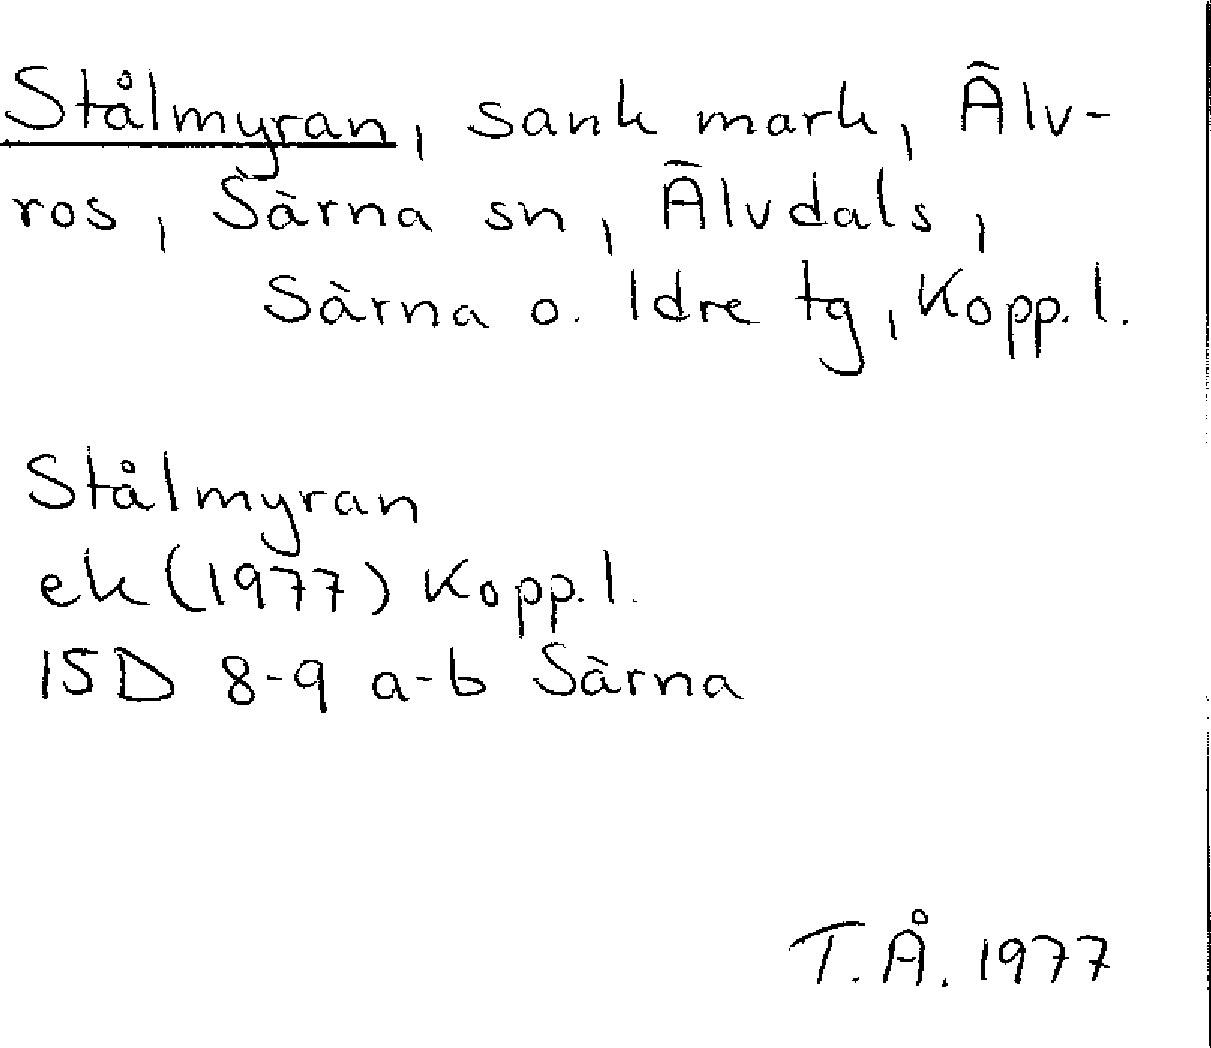 Stålmyran, sank mark, Älv-
ros, Särna sn, Älvdals,
Särna o. Idre tg, Kopp. l.
Stålmyran
ek (1977) Kopp. l.
15D 8-9 a-b Särna
T.Å. 1977